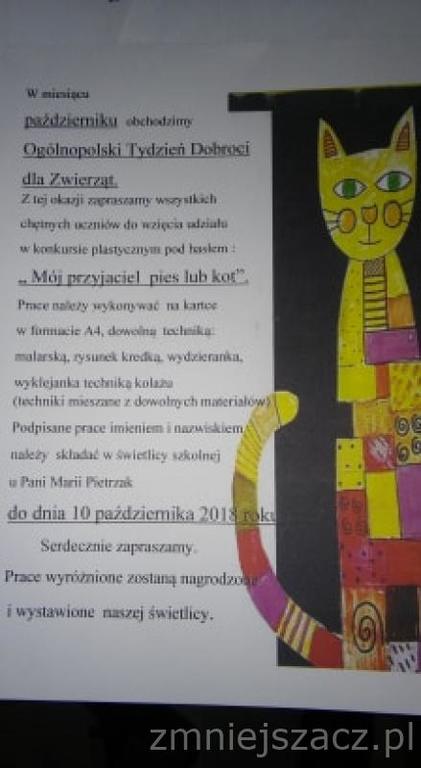 W miesiącu
październiku obchodzimy
Ogólnopolski Tydzień Dobroci
dla Zwierząt.
Z tej okazji zapraszamy wszystkich
chętnych uczniów do wzięcia udziału
w konkursie plastycznym pod hasłem :
„ Mój przyjaciel pies lub kot”.
Prace należy wykonywać na kartce
w formacie A4, dowolną techniką:
malarską, rysunek kredką, wydzieranka,
wyklejanka techniką kolażu
(techniki mieszane z dowolnych materiałów)
Podpisane prace imieniem i nazwiskiem
należy składać w świetlicy szkolnej
u Pani Marii Pietrzak
do dnia 10 października 2018 roku
Serdecznie zapraszamy.
Prace wyróżnione zostaną nagrodzone
i wystawione naszej świetlicy.
zmniejszacz.pl